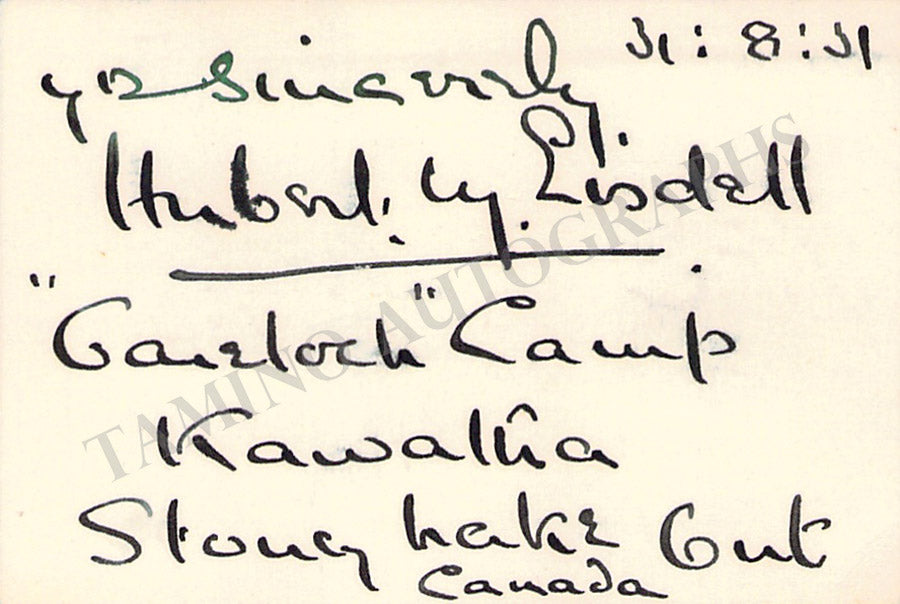 yrs sincerely. 31:8:31
Hubert. W. Eisdell
"Gareloch" Camp
Kawatha
Stoney Lake Ont
Canada
TAMINO AUTOGRAPHS